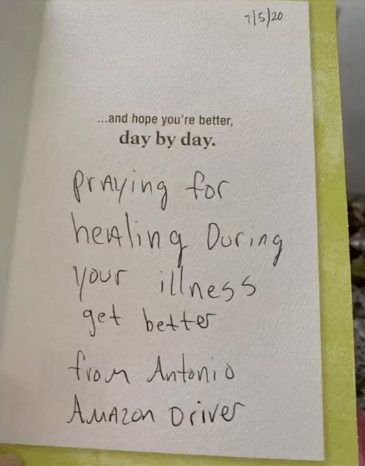 7/5/20
...and hope you're better,
day by day.
Praying for
healing During
your illness
get better
from Antonio
Amazon Driver